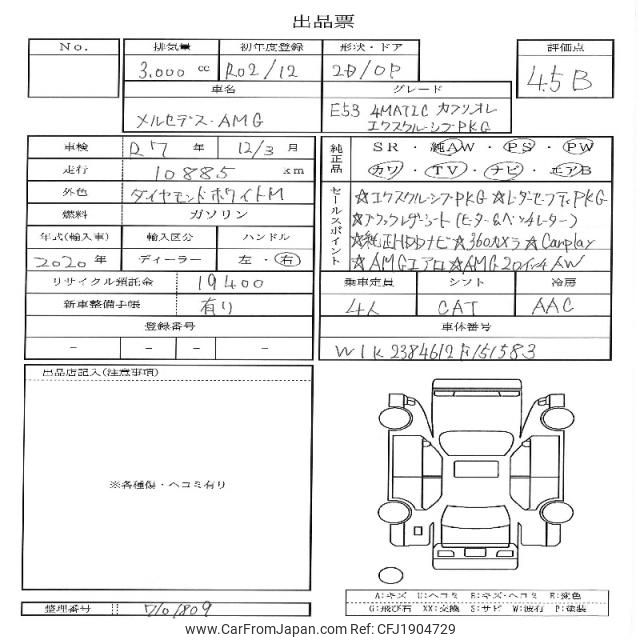 出品票
No.
排気量 初年度登録 形状・ドア 評価点
3.000 cc R02/12 2D/OP 4.5B
車名 グレード
メルセデス・AMG
E53 4MATIC カブリオレ
エクスクルーシブPKG
車検 R7 年 12/3 月
走行 10885 km
外色 ダイヤモンドホワイトM
燃料 ガソリン
年式(輸入車) 輸入区分 ハンドル
2020年 ディーラー 左・右
リサイクル預託金 19400
新車整備手帳 有り
登録番号
- - - -
純正品
SR・純AW・PS・PW
カワ・TV・ナビ・エアB
セールスポイント
☆エクスクルーシブPKG ☆レーダーセーフティPKG
☆ブラックレザーシート(ヒーター&ベンチレーター)
☆純正HDDナビ☆360°カメラ☆Carplay
☆AMGエアロ☆AMG20インチAW
乗車定員 シフト 冷房
4人 CAT AAC
車体番号
W1K2384612F151583
出品店記入(注意事項)
※各種傷・ヘコミ有り
A:キズ U:ヘコミ B:キズ・ヘコミ E:変色
G:飛び石 XX:交換 S:サビ W:波打 P:塗装
整理番号 7101809
www.CarFromJapan.com Stock ID: CFJ1904729